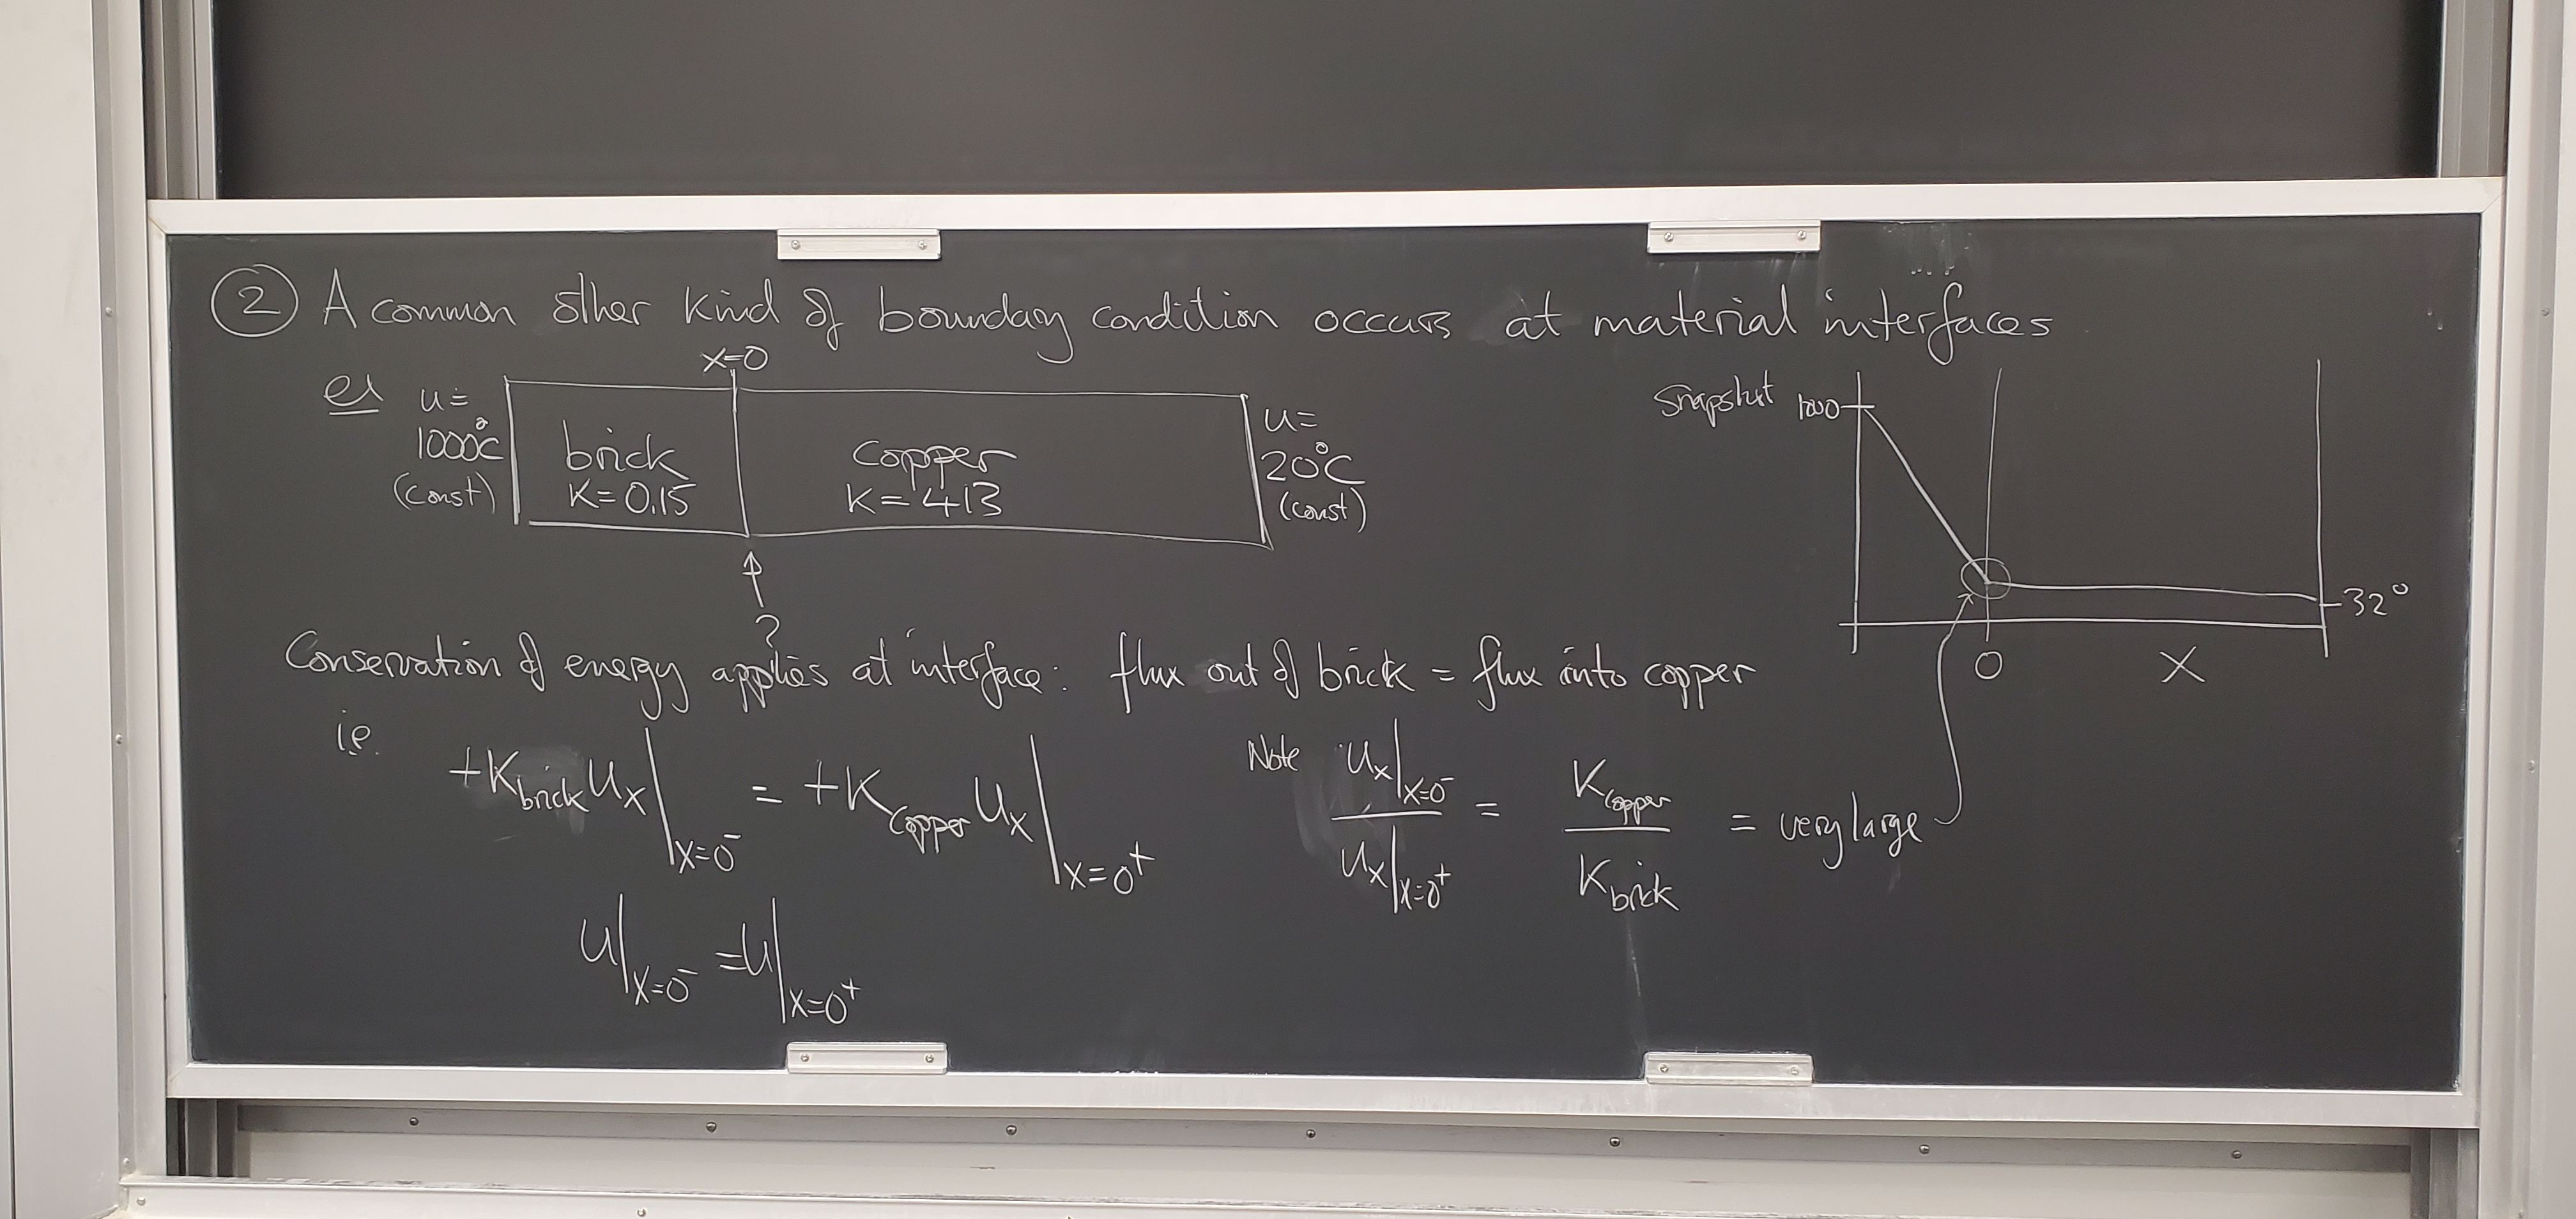 ② A common other kind of boundary condition occurs at material interfaces
x=0
ex u= 1000°C (const)
brick K=0.15
copper K=413
u= 20°C (const)
?
snapshot 1000
32°
0 x
Conservation of energy applies at interface: flux out of brick = flux into copper
i.e.
+K_brick u_x|_x=0⁻ = +K_copper u_x|_x=0⁺
Note u_x|_x=0⁻ / u_x|_x=0⁺ = K_copper / K_brick = very large
u|_x=0⁻ = u|_x=0⁺